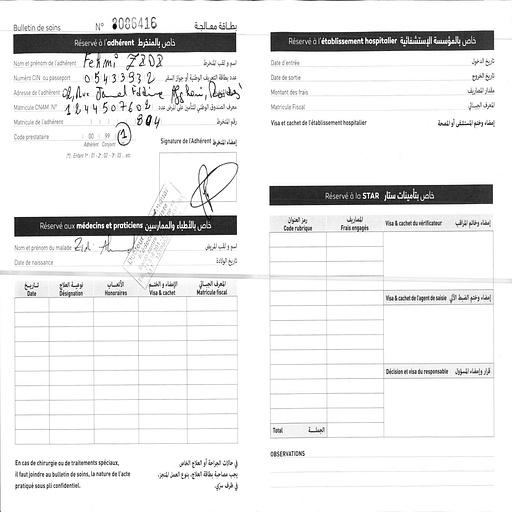 Bulletin de soins N° 8006416 بطاقة معالجة
Réservé à l'adhérent خاص بالمنخرط
Nom et prénom de l'adhérent Fehmi ZIDI اسم و لقب المنخرط
Numéro CIN ou passeport 05433932 عدد بطاقة التعريف الوطنية أو جواز السفر
Adresse de l'adhérent Rue عنوان المنخرط
Matricule CNAM N° 1244507602 معرف الصندوق الوطني للتأمين على المرض عدد
Matricule de l'adhérent 804 رقم المنخرط
Code prestataire 00 99 1
Adhérent Conjoint
(*) Enfant 1er : 01 - 2 : 02 - 3 : 03 .. etc
Signature de l'Adhérent إمضاء المنخرط
Réservé aux médecins et praticiens خاص بالأطباء والممارسين
Nom et prénom du malade Zidi اسم و لقب المريض
Date de naissance تاريخ الولادة
تاريخ نوعية العلاج الأتعاب الإمضاء و الختم المعرف الجبائي
Date Désignation Honoraires Visa & cachet Matricule fiscal
En cas de chirurgie ou de traitements spéciaux,
il faut joindre au bulletin de soins, la nature de l'acte
pratiqué sous pli confidentiel.
في حالات الجراحة أو العلاج الخاص
يجب مصاحبة بطاقة العلاج، بنوع العمل المنجز،
في ظرف سري.
Réservé à l'établissement hospitalier خاص بالمؤسسة الإستشفائية
Date d'entrée تاريخ الدخول
Date de sortie تاريخ الخروج
Montant des frais مقدار المصاريف
Matricule Fiscal المعرف الجبائي
Visa et cachet de l'établissement hospitalier إمضاء وختم المستشفى أو المصحة
Réservé à la STAR خاص بتأمينات ستار
رمز العنوان المصاريف
Code rubrique Frais engagés
Visa & cachet du vérificateur إمضاء وخاتم المراقب
Visa & cachet de l'agent de saisie إمضاء وختم الضبط الآلي
Décision et visa du responsable قرار وإمضاء المسؤول
Total الجملة
OBSERVATIONS